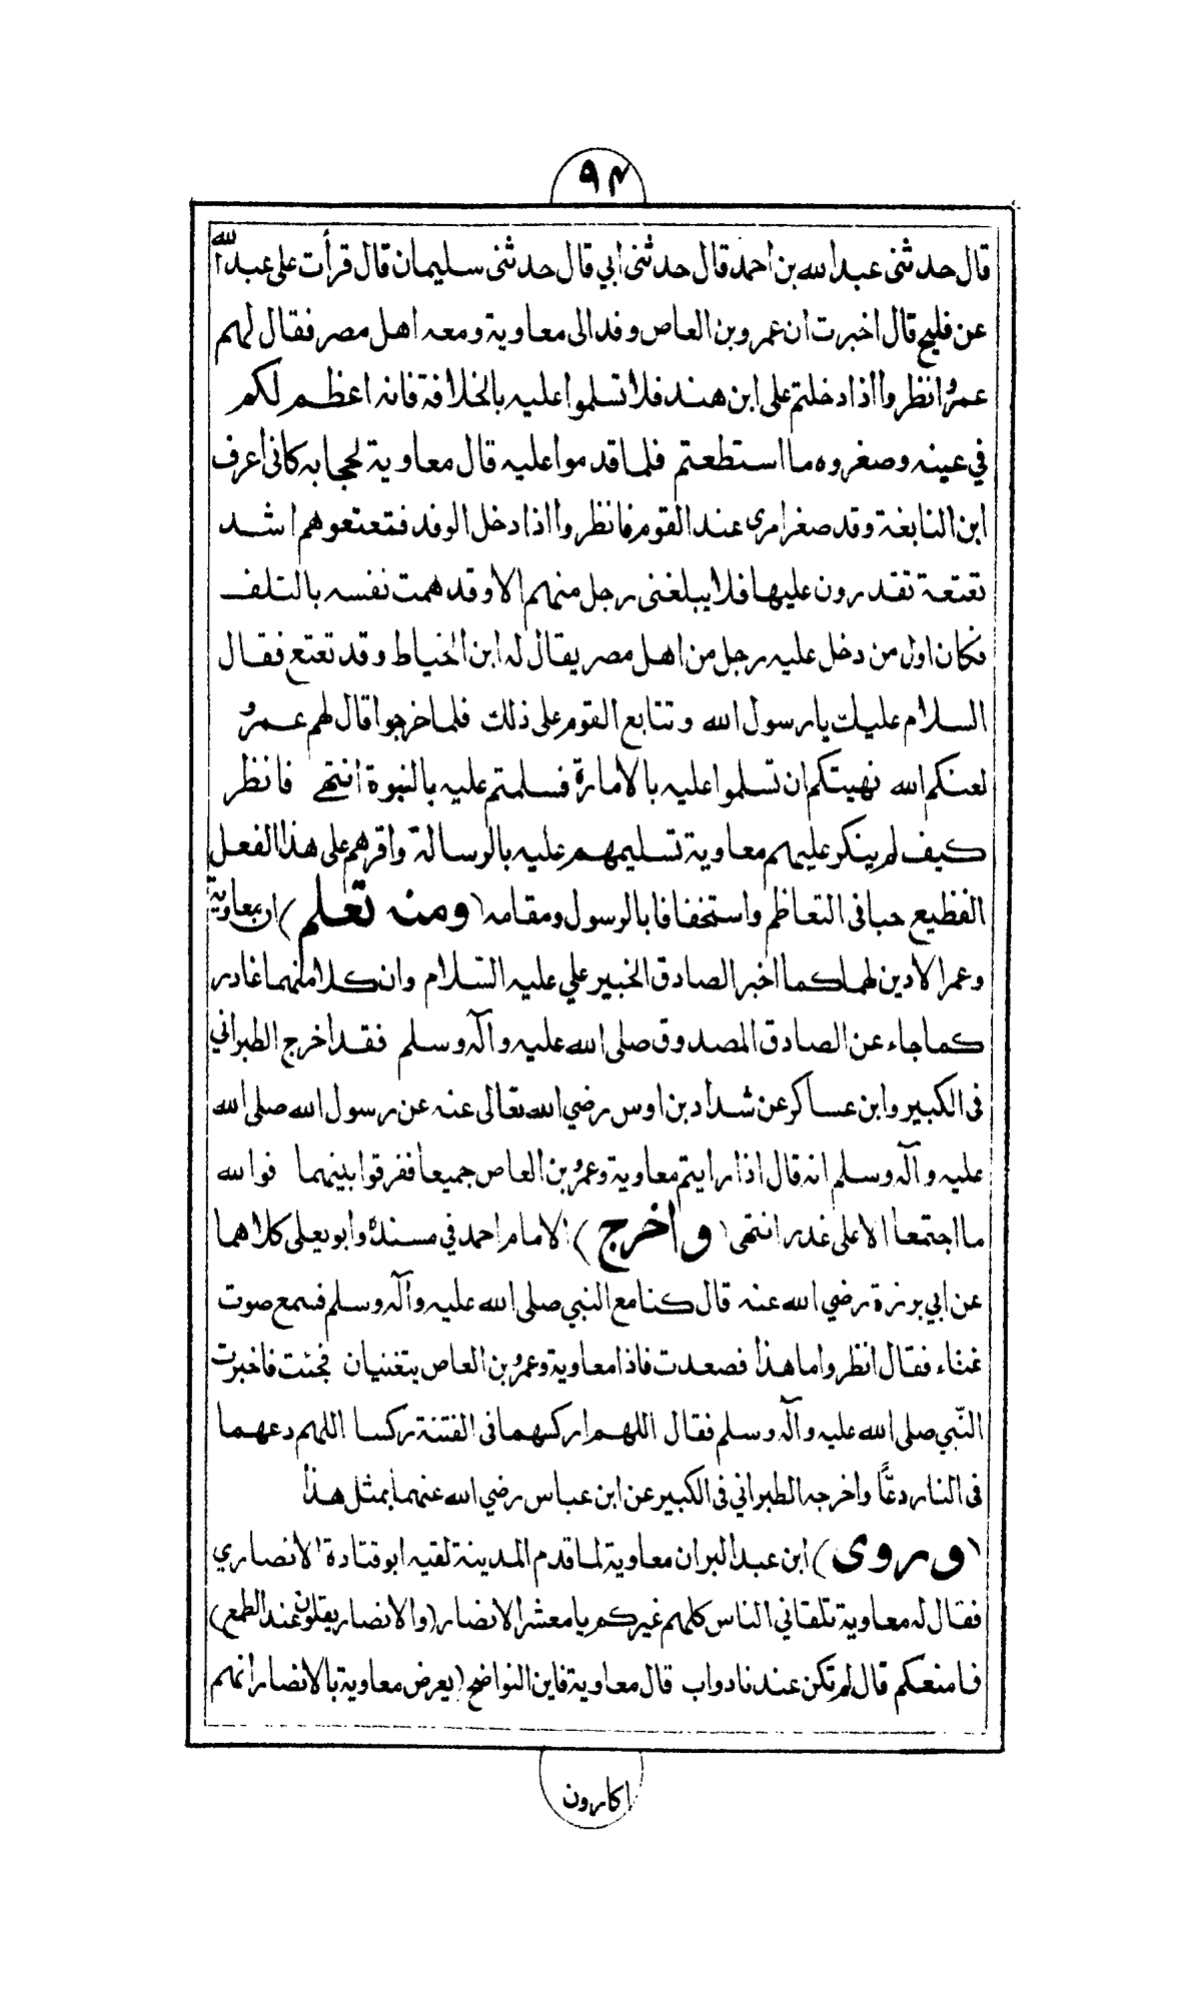 ٩٤
قال حدثنى عبد الله بن احمد قال حدثنى ابي قال حدثنى سليمان قال قرأت على عبد الله
عن فليح قال اخبرت ان عمرو بن العاص وفد الى معاوية ومعه اهل مصر فقال لهم
عمرو انظروا اذا دخلتم على ابن هند فلا تسلموا عليه بالخلافة فانه اعظم لكم
في عينه وصغروه ما استطعتم فلما قدموا عليه قال معاوية لحجابه كانى اعرف
ابن النابغة وقد صغر امرى عند القوم فانظروا اذا دخل الوفد فتعتعوهم اشد
تعتعة تقدرون عليها فلا يبلغنى رجل منهم الا وقد همت نفسه بالتلف
فكان اول من دخل عليه رجل من اهل مصر يقال له ابن الخياط وقد تعتع فقال
السلام عليك يا رسول الله وتتابع القوم على ذلك فلما خرجوا قال لهم عمرو
لعنكم الله نهيتكم ان تسلموا عليه بالامارة فسلمتم عليه بالنبوة انتهى فانظر
كيف لم ينكر عليهم معاوية تسليمهم عليه بالرسالة واقرهم على هذا الفعل
الفظيع حبا فى التعاظم واستخفافا بالرسول ومقامه (ومنه تعلم) ان معاوية
وعمرا لا دين لهما كما اخبر الصادق الخبير علي عليه السّلام وان كلا منهما غادر
كما جاء عن الصادق المصدوق صلى الله عليه وآله وسلم فقد اخرج الطبراني
فى الكبير وابن عساكر عن شداد بن اوس رضي الله تعالى عنه عن رسول الله صلى الله
عليه وآله وسلم انه قال اذا رايتم معاوية وعمرو بن العاص جميعا ففرقوا بينهما فوالله
ما اجتمعا الا على غدر انتهى (واخرج) الامام احمد في مسنده وابو يعلى كلاهما
عن ابي برزة رضي الله عنه قال كنا مع النبي صلى الله عليه وآله وسلم فسمع صوت
غناء فقال انظروا ما هذا فصعدت فاذا معاوية وعمرو بن العاص يتغنيان فجئت فاخبرت
النّبي صلى الله عليه وآله وسلم فقال اللهم اركسهما فى الفتنة ركسا اللهم دعهما
فى النار دعًّا واخرجه الطبراني فى الكبير عن ابن عباس رضي الله عنهما بمثل هذا
(وروى) ابن عبد البر ان معاوية لما قدم المدينة لقيه ابو قتادة الانصاري
فقال له معاوية تلقاني الناس كلهم غيركم يا معشر الانصار (والانصار يقلون عند الطمع)
فما منعكم قال لم تكن عندنا دواب قال معاوية فاين النواضح (يعرض معاوية بالانصار انهم
اكارون